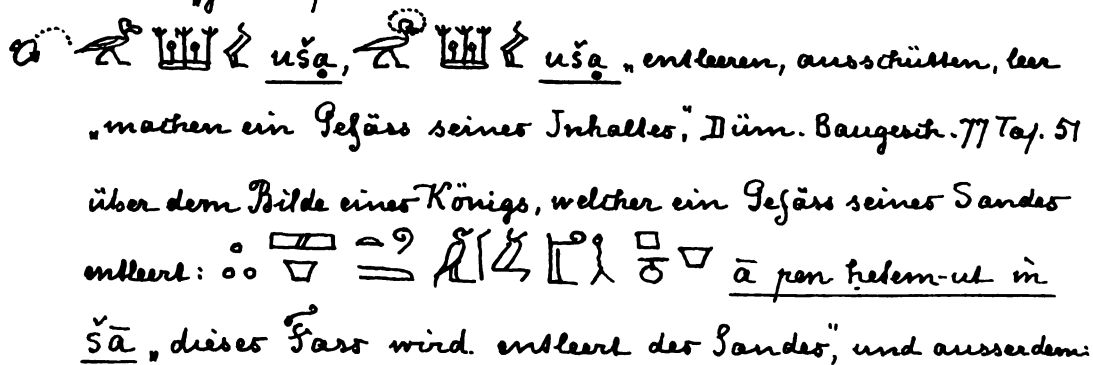 ušạ, ušạ „entleeren, ausschütten, leer
„machen ein Gefäss seines Inhaltes", Düm. Baugesch. 77 Taf. 51
über dem Bilde eines Königs, welcher ein Gefäss seines Sandes
entleert: ā pen ḥetem-ut
šā „dieses Fass wird entleert des Sandes", und ausserdem: